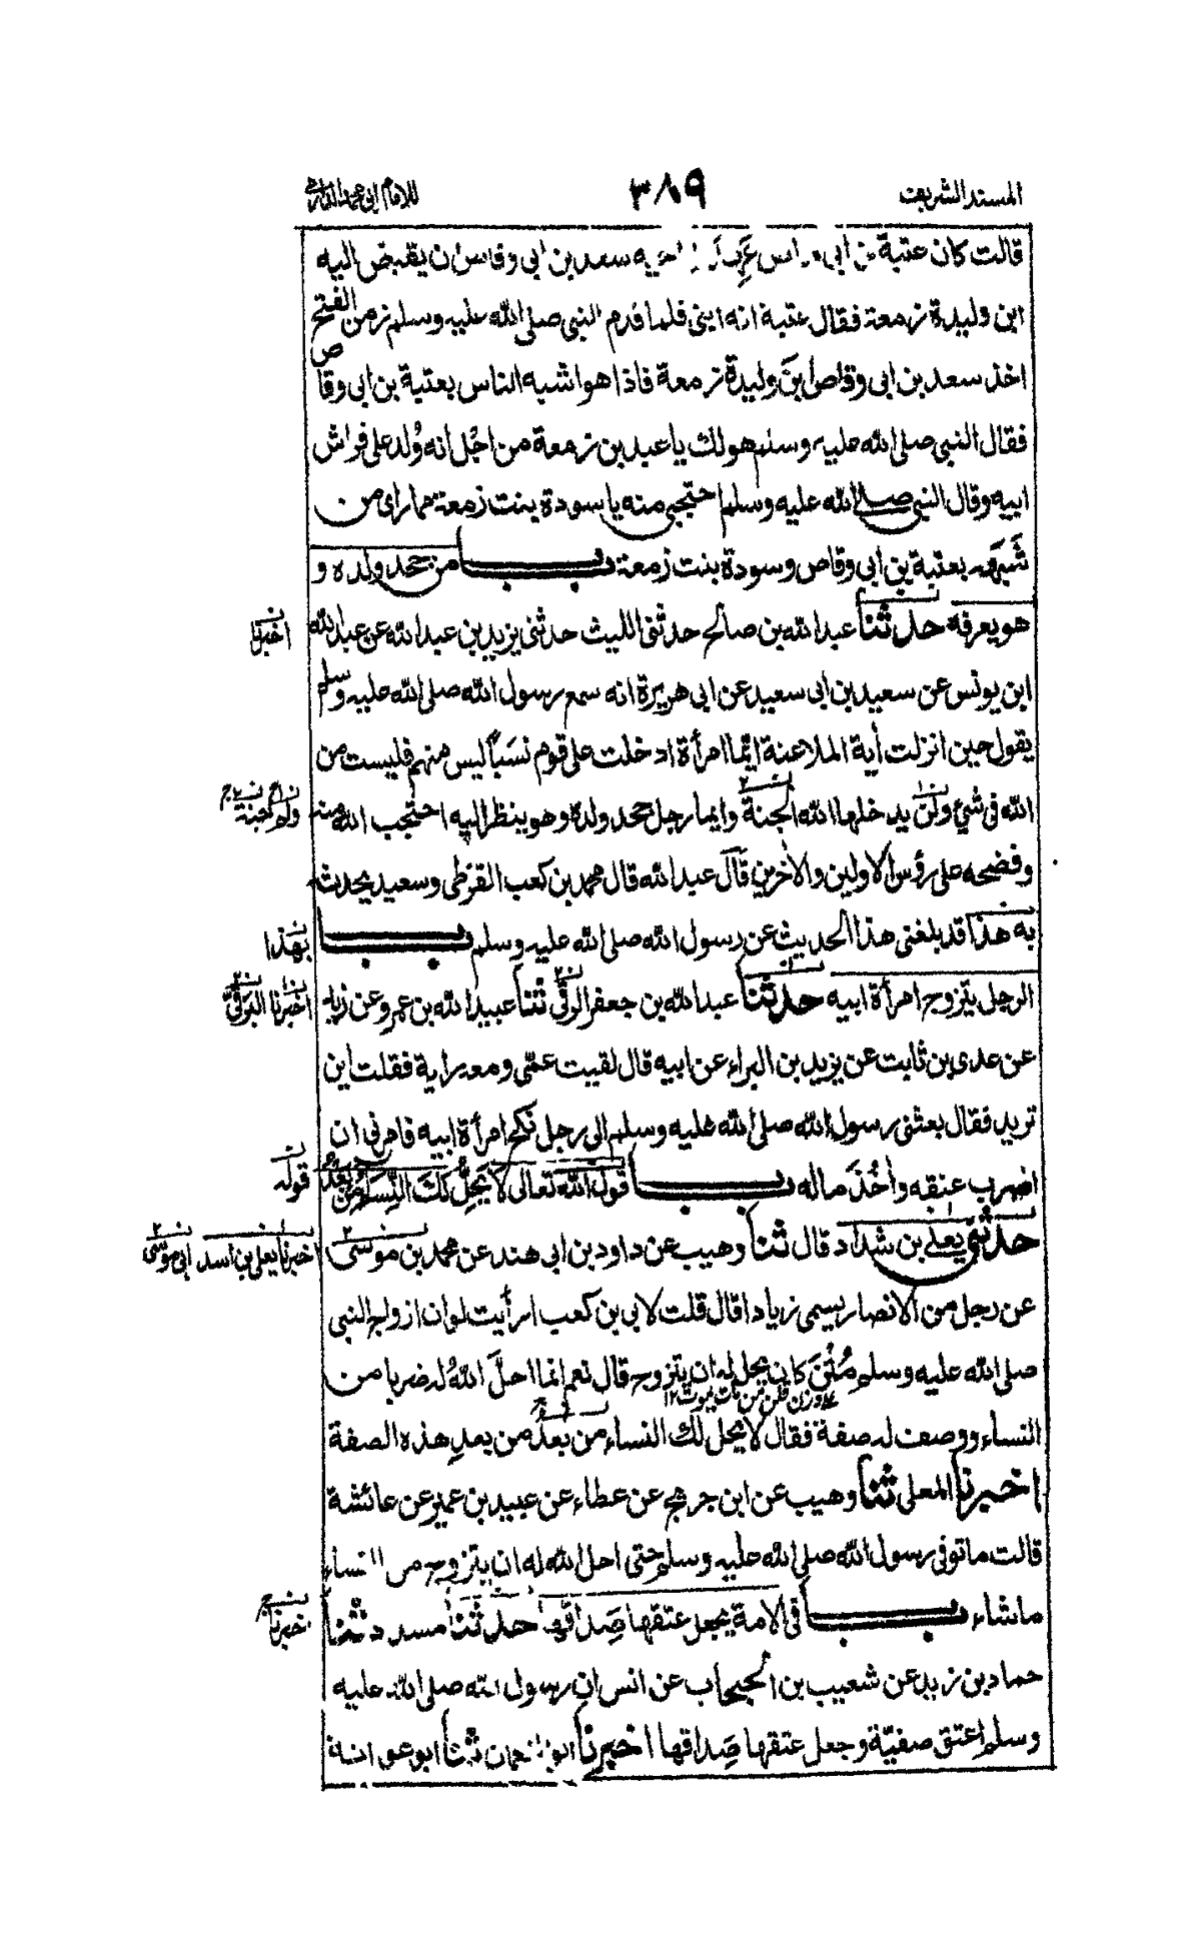 المسند الشريف ٣٨٩ للامام ابى محمد الدارمى
قالت كان عتبة بن ابى اخيه سعد بن ابى وقاص ان يقبض اليه
ابن وليدة زمعة فقال عتبة انه ابنى فلما قدم النبى صلى الله عليه وسلم زمن الفتح
اخذ سعد بن ابى وقاص ابن وليدة زمعة فاذا هو اشبه الناس بعتبة بن ابى وقاص
فقال النبى صلى الله عليه وسلم هو لك يا عبد بن زمعة من اجل انه ولد على فراش
ابيه وقال النبى صلى الله عليه وسلم احتجبى منه يا سودة بنت زمعة مما راى من
شَبَهِه بعتبة بن ابى وقاص وسودة بنت زمعة باب من جحد ولده و
هو يعرفه حدثنا عبد الله بن صالح حدثنى الليث حدثنى يزيد بن عبد الله عن عبد الله
اخبرنا
ابن يونس عن سعيد بن ابى سعيد عن ابى هريرة انه سمع رسول الله صلى الله عليه وسلم
يقول حين انزلت أية الملاعنة ايّما امرأة ادخلت على قوم نسَباً ليس منهم فليست من
الله فى شئ ولن يدخلها الله الجنة وايما رجل جحد ولده وهو ينظر اليه احتجب الله منه
ولم جنته
وفضحه على رؤس الاولين والأخرين قال عبد الله قال محمد بن كعب القرظى وسعيد يحدثه
به هذا قد بلغنى هذا الحديث عن رسول الله صلى الله عليه وسلم باب
بهذا
الرجل يتزوج امرأة ابيه حدثنا عبد الله بن جعفر الرقى ثنا عبيد الله بن عمرو عن زيد
اخبرنا البرقىّ
عن عدى بن ثابت عن يزيد بن البراء عن ابيه قال لقيت عمّى ومعه راية فقلت اين
تريد فقال بعثنى رسول الله صلى الله عليه وسلم الى رجل نكح امرأة ابيه فامرنى ان
اضرب عنقه وأخُذَ ماله باب قول الله تعالى لا يَحِلُّ لَكَ النِّسَاءُ مِنْ بَعْدُ
قوله
حدثنى يعلى بن شداد قال ثنا وهيب عن داود بن ابى هند عن محمد بن موسى
اخبرنا يعلى بن اسد ابى موسى
عن رجل من الانصار يسمى زيادا قال قلت لابى بن كعب ارأيت لو ان ازواج النبى
صلى الله عليه وسلم مُتْنَ كان يحل له ان يتزوج قال نعم انما احلَّ اللهُ له ضربا من
النساء ووصف له صفة فقال لا يحل لك النساء من بعدُ من بعدِ هذه الصفة
اخبرنا المعلى ثنا وهيب عن ابن جريج عن عطاء عن عبيد بن عمير عن عائشة
قالت ما توفى رسول الله صلى الله عليه وسلم حتى احل الله له ان يتزوج من النساء
ما شاء باب فى الامة يجعل عتقها صِداقها حدثنا مسدد ثنا
اخبرنا
حماد بن زيد عن شعيب بن الحبحاب عن انس ان رسول الله صلى الله عليه
وسلم اعتق صفيّة وجعل عتقها صِداقها اخبرنا ابو النعمان ثنا ابو عوانة